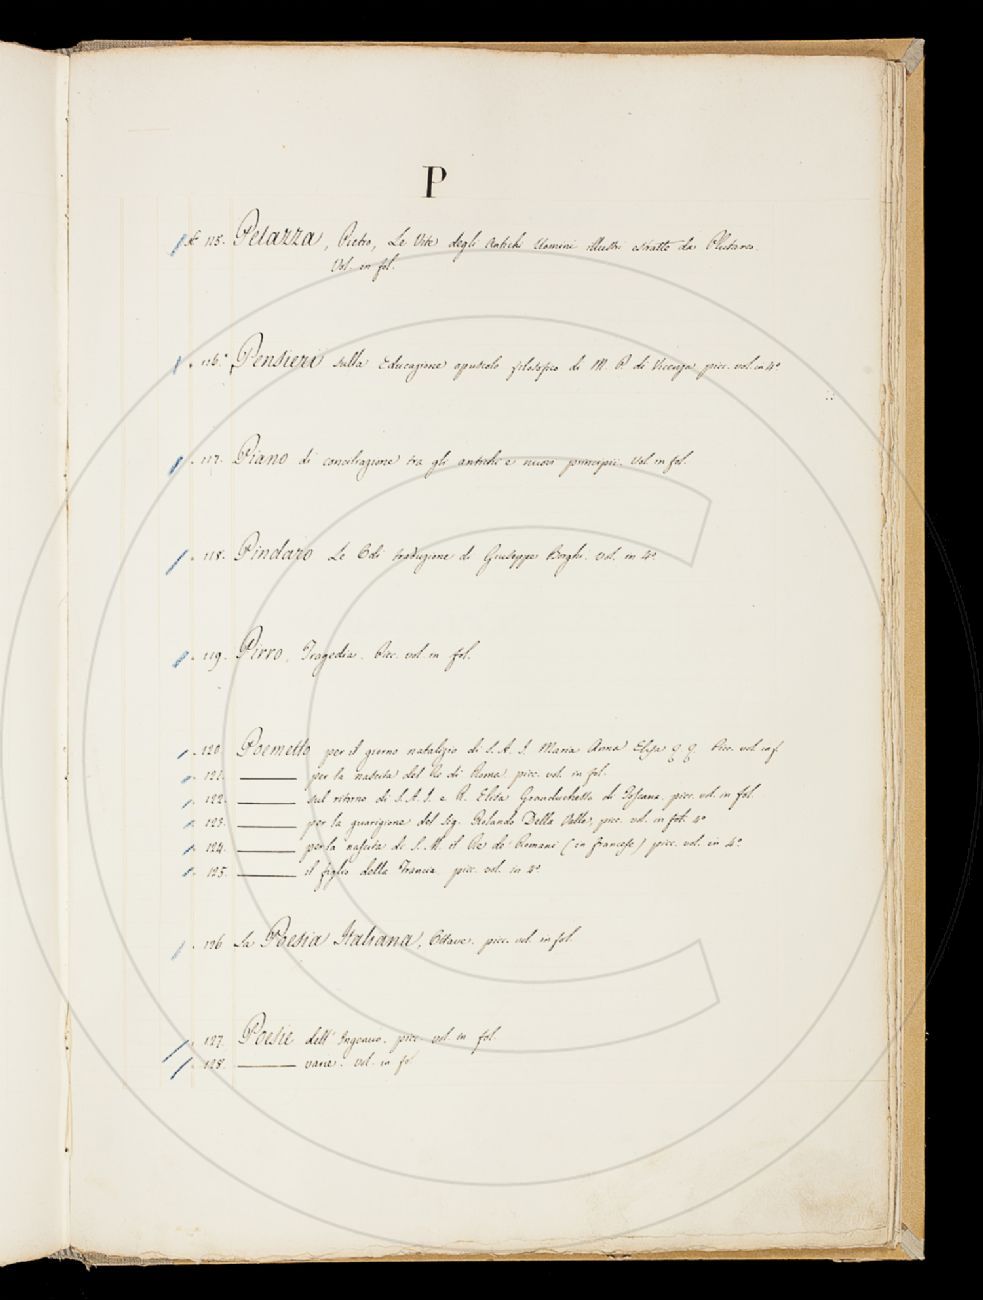 P
N° 115. Pelazza, Pietro, Le Vite degli Antichi Uomini illustri estratte da Plutarco.
Vol. in fol.
" 116. Pensieri sulla Educazione opuscolo filosofico di M. P. di Vicenza picc. vol. in 4°
" 117. Piano di conciliazione tra gli antichi e nuovi principii. Vol. in fol.
" 118. Pindaro Le Odi traduzione di Giuseppe Borghi. Vol. in 4°
" 119. Pirro, Tragedia. Picc. vol. in fol.
" 120. Poemetto per il giorno natalizio di S. A. I. Maria Anna Elisa Picc. vol. in f.
" 121. ——— per la nascita del Re di Roma picc. vol. in fol.
" 122. ——— sul ritorno di S. A. I. e R. Elisa Granduchessa di Toscana, picc. vol. in fol.
" 123. ——— per la guarigione del Sig. Rolando Della Valle, picc. vol. in fol. 4°
" 124. ——— per la nascita di S. M. il Re de Romani (in francese) picc. vol. in 4°
" 125. ——— il figlio della Francia picc. vol. in 4°
" 126. La Poesia Italiana, Ottave. picc. vol. in fol.
" 127. Poesie dell' picc. vol. in fol.
" 128. ——— varie. vol. in fol